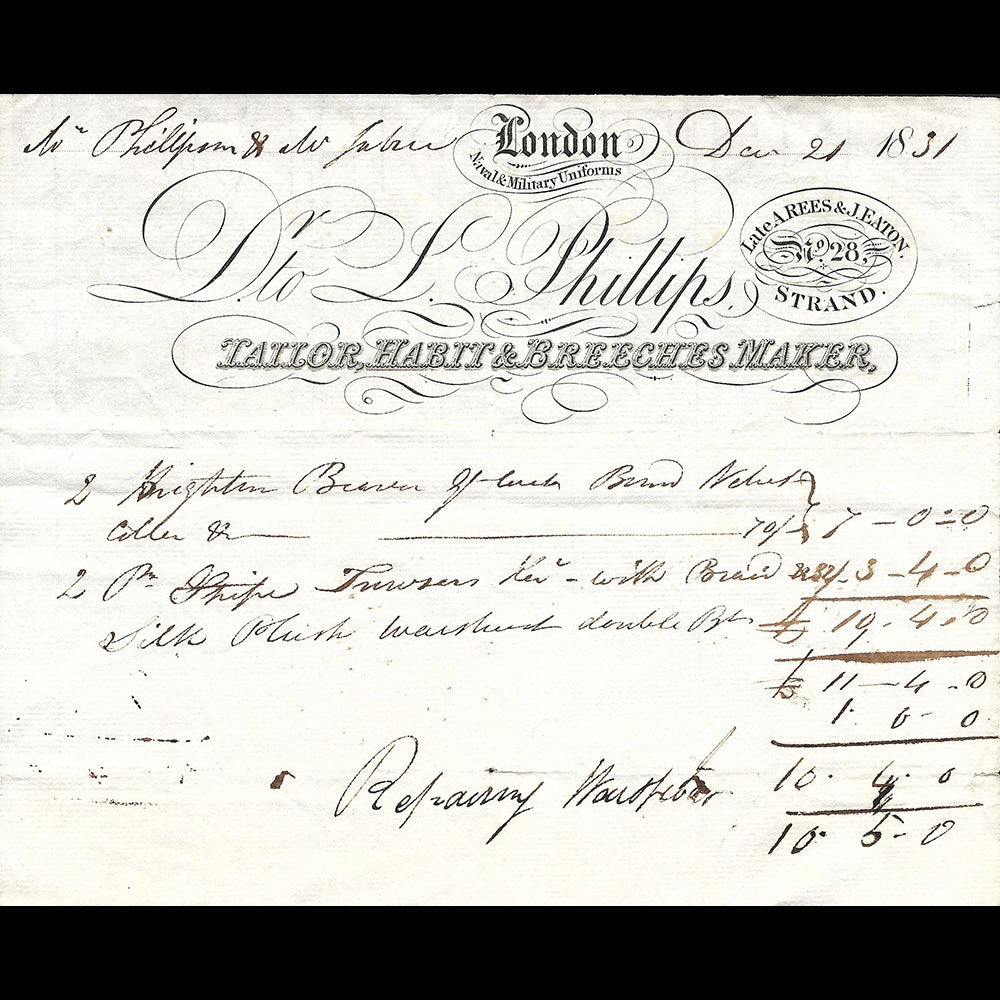 Mr Phillipson & Mr London Dec 21 1831
Naval & Military Uniforms
Late A. REES & J. EATON.
No. 28,
STRAND.
Dr. to L. Phillips,
TAILOR, HABIT & BREECHES MAKER,
2 Brighton Beaver Velvet
Coller & 70/ 7 - 0 - 0
2 Pr Stripe Trowsers - with Braid 32/ 3 - 4 - 0
£ 10 . 4 . 0
Silk Plush double
£ 11 - 4 - 0
1 . 0 - 0
10 . 4 . 0
Repairing
10 . 5 - 0